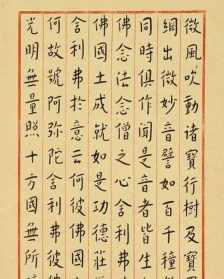 微風吹動諸寶行樹及寶
網出微妙音譬如百千種
同時俱作聞是音者皆生
佛念法念僧之心舍利弗
佛國土成就如是功德莊
舍利弗於意云何彼佛
何故號阿弥陀舍利弗彼佛
光明無量照十方國無所